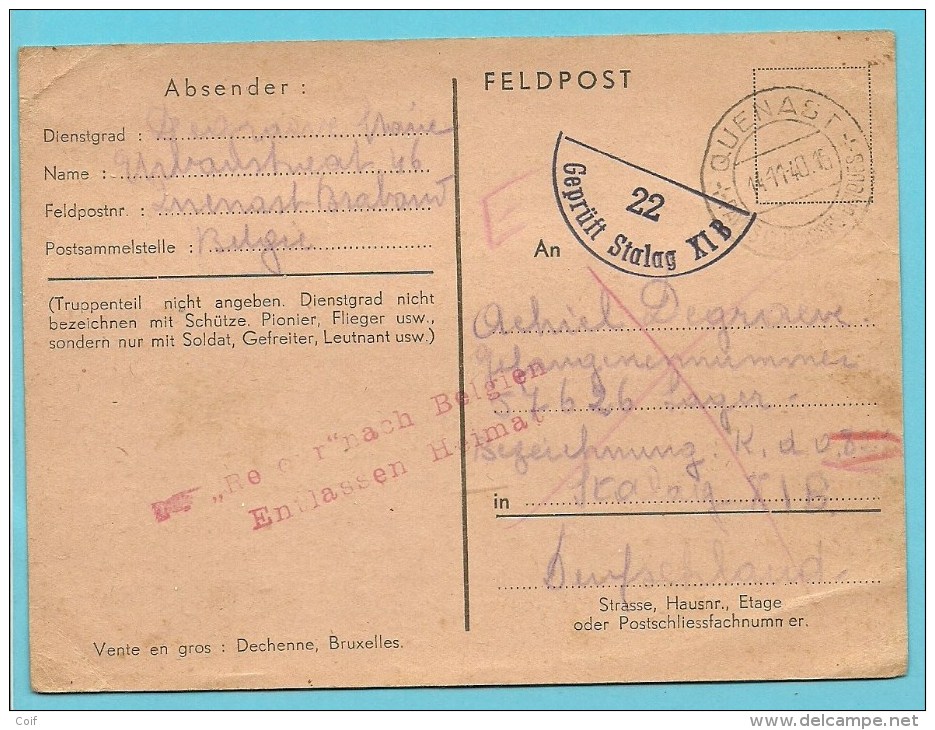 Absender :
Dienstgrad :
Name : 46
Feldpostnr. : Quenast Braband
Postsammelstelle : Belgie
(Truppenteil nicht angeben. Dienstgrad nicht
bezeichnen mit Schütze, Pionier, Flieger usw.,
sondern nur mit Soldat, Gefreiter, Leutnant usw.)
„Re o r" nach Belgien
Entlassen Heimat
Vente en gros : Dechenne, Bruxelles.
FELDPOST
QUENAST
14-11-40.16
22
Geprüft Stalag XI B
E
An
Achiel Degraeve
Gefangenennummer
57626 Lager-
Bezeichnung: K. d o. 8
in Stalag XIB
Deutschland
Strasse, Hausnr., Etage
oder Postschliessfachnummer.
Coif
delcampe.net